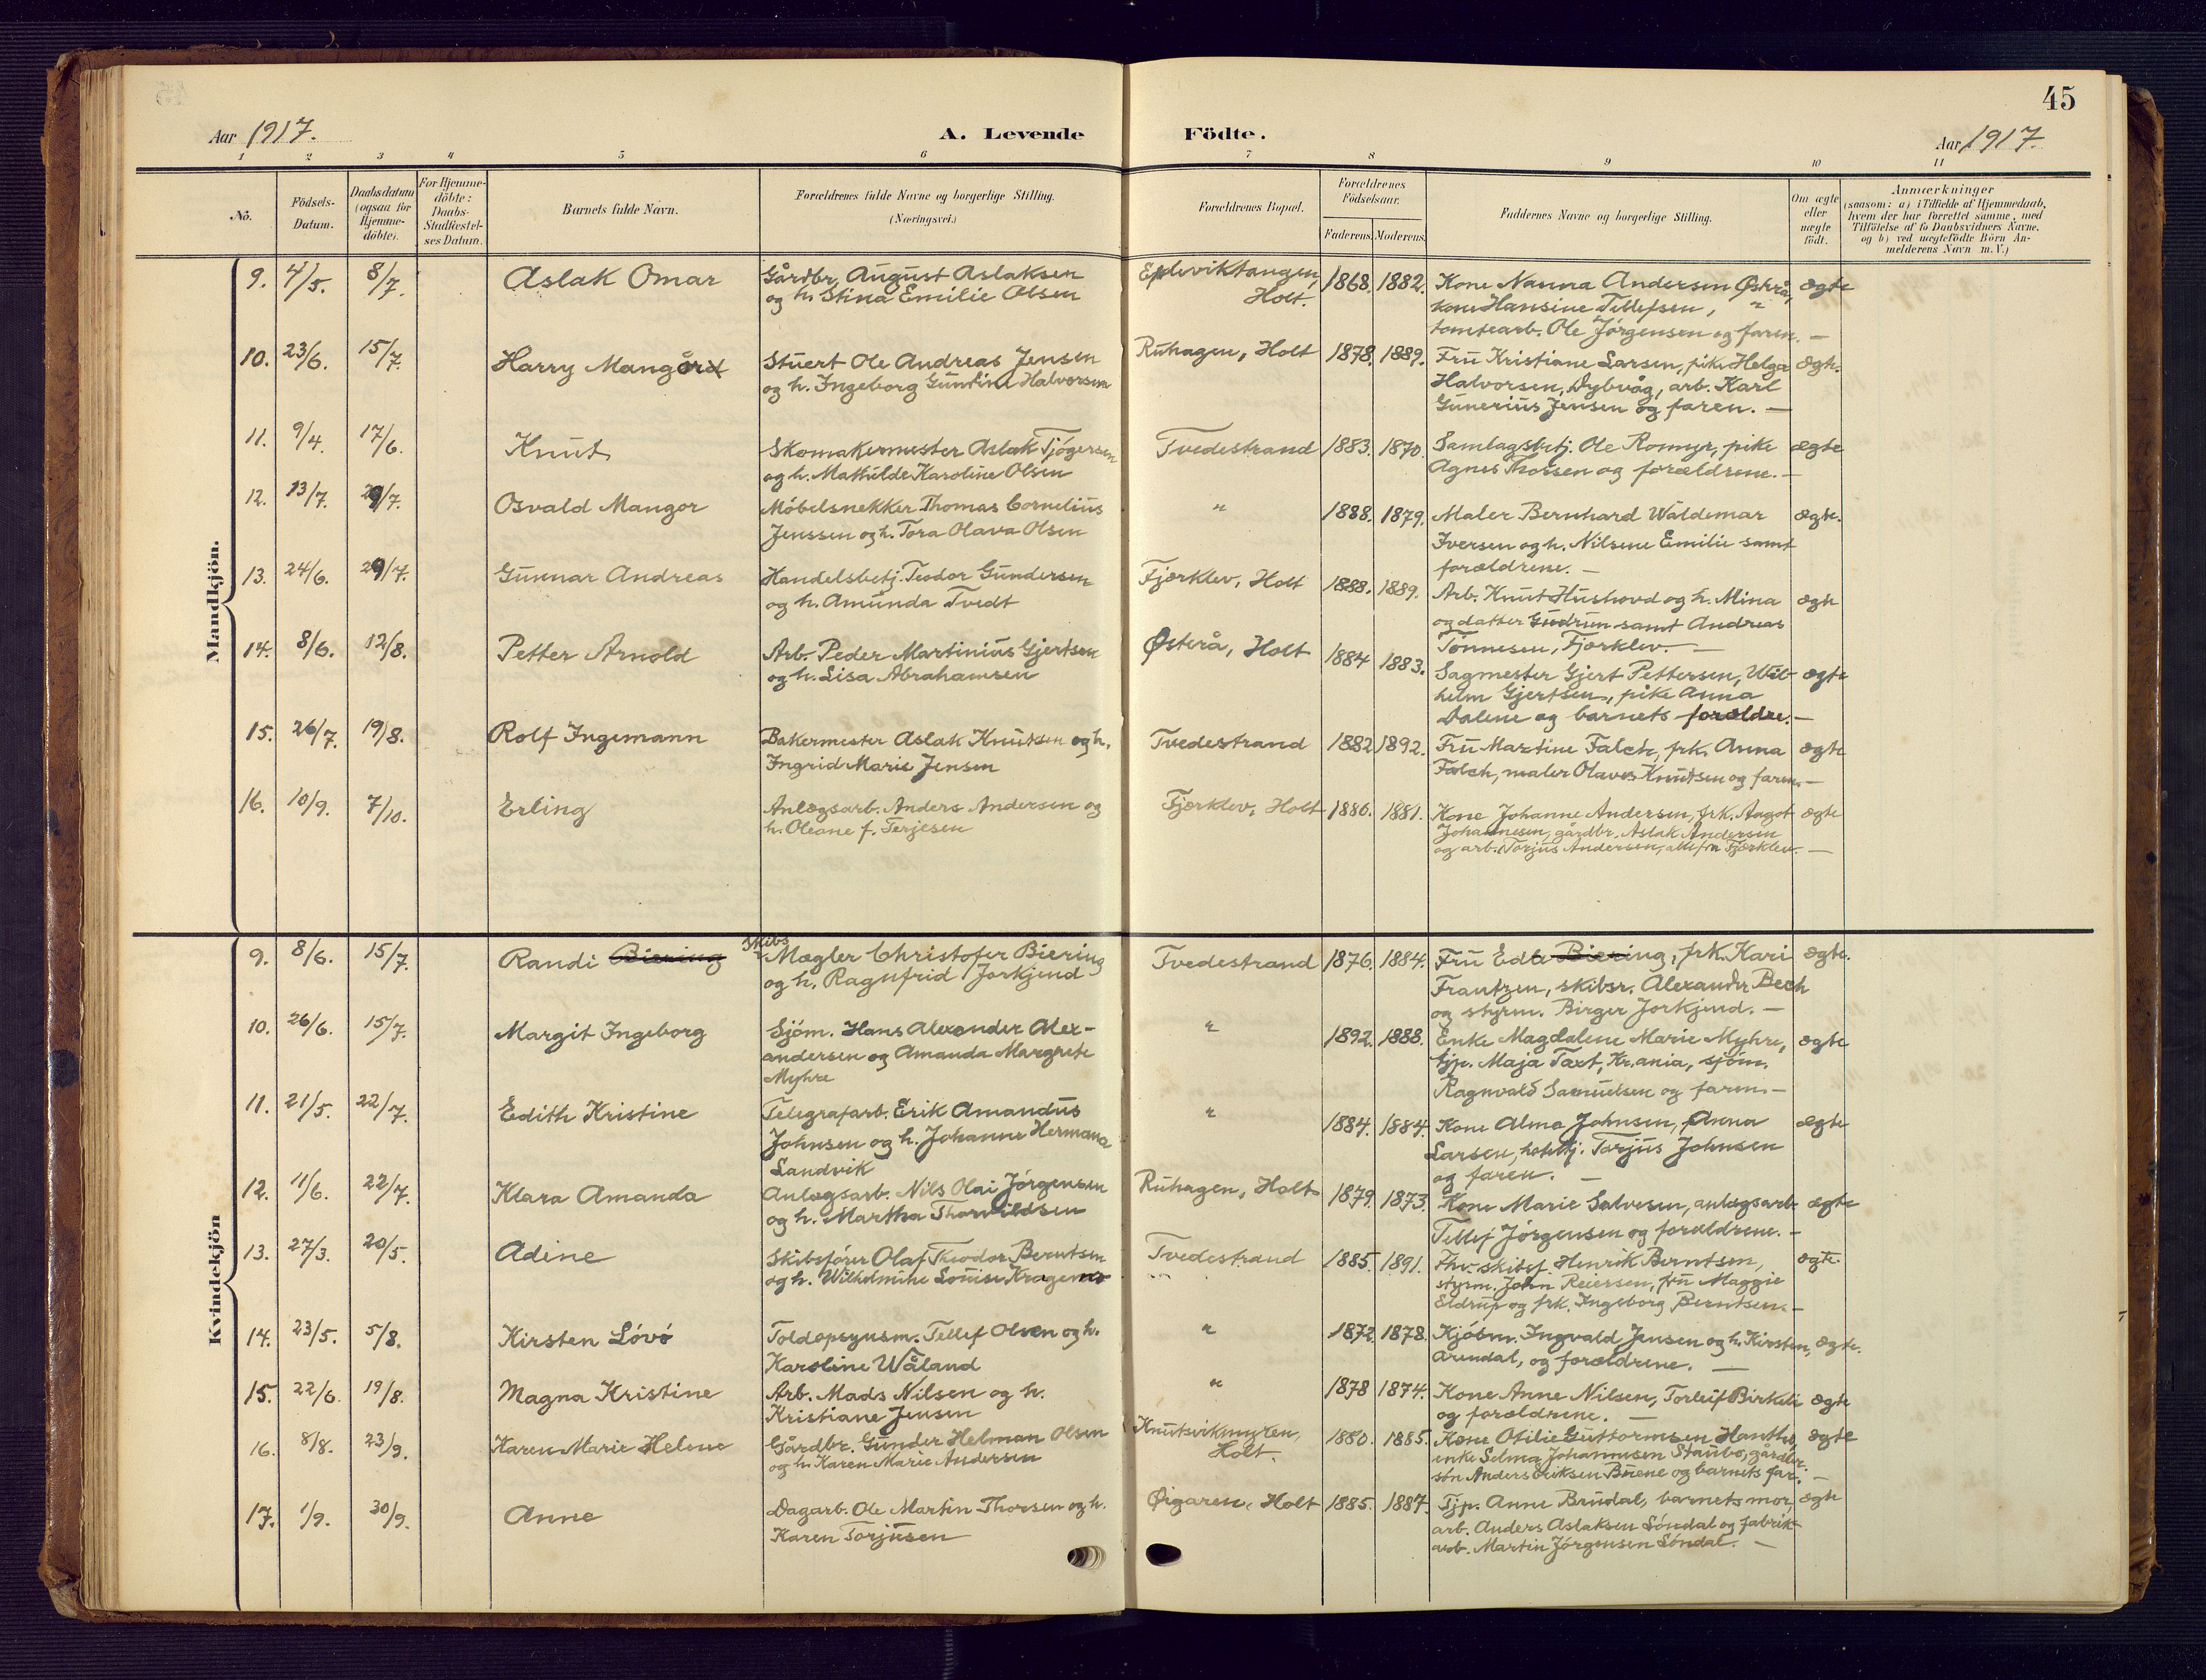 45
Aar 1917.
A. Levende Födte.
Aar 1917.
1 2 3 4 5 6 7 8 9 10 11
No.
Födsels-Datum.
Daabsdatum (ogsaa for Hjemme-döbte).
For Hjemme-döbte: Daabs-Stadfæstel-ses Datum.
Barnets fulde Navn.
Forældrenes fulde Navne og borgerlige Stilling. (Næringsvei.)
Forældrenes Bopæl.
Forældrenes Födselsaar.
Faderens. Moderens.
Faddernes Navne og borgerlige Stilling.
Om ægte eller uægte født.
Anmærkninger
(saasom: a) i Tilfælde af Hjemmedaab,
hvem der har forrettet samme, med
Tilföielse af to Daabsvidners Navne,
og b) ved uægtefödte Börn An-
melderens Navn m.V.)
Mandkjön.
9. 4/5. 8/7. Aslak Omar
Gårdbr. August Aslaksen
og h. Stina Emilie Olsen
Epleviktangen,
Holt.
1868. 1882.
Kone Nanna Andersen Østerå,
kone Hansine Tellefsen, "
tomtearb. Ole Jørgensen og faren. —
ægte
10. 23/6. 15/7. Harry Mangor
Stuert Ole Andreas Jensen
og h. Ingeborg Gundine Halvorsen
Ruhagen, Holt
1878. 1889.
Fru Kristiane Larsen, pike Helga
Halvorsen, Dybvåg, arb. Karl
Gunerius Jensen og faren. —
ægte.
11. 9/4. 17/6. Knut
Skomakermester Aslak Tjøgersen
og h. Mathilde Karoline Olsen
Tvedestrand
1883. 1870.
Samlagsbetj. Ole Romyr, pike
Agnes Thorsen og forældrene. —
ægte
12. 13/7. 29/7. Osvald Mangor
Møbelsnekker Thomas Cornelius
Jenssen og h. Tora Olava Olsen
"
1888. 1879.
Maler Bernhard Waldemar
Iversen og h. Nilsene Emilie samt
forældrene. —
ægte.
13. 24/6. 29/7. Gunnar Andreas
Handelsbetj. Teodor Gundersen
og h. Amunda Tvedt
Fjærklev, Holt
1888. 1889.
Arb. Knut Hushovd og h. Mina
og datter Gudrun samt Andreas
Tønnesen, Fjærklev. —
ægte
14. 8/6. 12/8. Petter Arnold
Arb. Peder Martinius Gjertsen
og h. Lisa Abrahamsen
Østerå, Holt
1884 1883.
Sagmester Gjert Pettersen, Wil-
helm Gjertsen, pike Anna
Dalene og barnets forældre. —
ægte
15. 26/7. 19/8. Rolf Ingemann
Bakermester Aslak Knutsen og h.
Ingrid Marie Jensen
Tvedestrand
1882 1892.
Fru Martine Falch, frk. Anna
Falch, maler Olaves Knutsen og faren. —
ægte
16. 10/9. 7/10. Erling
Anlægsarb. Anders Andersen og
h. Oleane f. Terjesen
Fjærklev, Holt
1886. 1881.
Kone Johanne Andersen, frk. Aagot
Johannesen, gårdbr. Aslak Andersen
og arb. Torjus Andersen, alle fra Fjærklev. —
ægte
Kvindekjön
9. 8/6. 15/7. Randi Biering
Skibs
Mægler Christofer Biering
og h. Ragnfrid Jorkjend
Tvedestrand
1876. 1884.
Fru Edle Biering, frk. Kari
Frantzen, skibsr. Alexander Bech
og styrm. Birger Jorkjend. —
ægte.
10. 26/6. 15/7. Margit Ingeborg
Sjøm. Hans Alexander Alex-
andersen og Amanda Margrete
Myhre
"
1892. 1888.
Enke Magdalene Marie Myhre,
tjp. Maja Taxt, Kr.ania, sjøm.
Ragnvald Samuelsen og faren. —
ægte
11. 21/5. 22/7. Edith Kristine
Telegrafarb. Erik Amandus
Johnsen og h. Johanne Hermana
Sandvik
"
1884. 1884.
Kone Alma Johnsen, Anna
Larsen, Torjus Johnsen
og faren. —
ægte
12. 11/6. 22/7. Klara Amanda
Anlægsarb. Nils Olai Jørgensen
og h. Martha Thorvildsen
Ruhagen, Holt
1879. 1873.
Kone Marie Salvesen, anlægsarb.
Tellef Jørgensen og forældrene. —
ægte
13. 27/3. 20/5. Adine
Skibsfører Olaf Theodor Berntsen
og h. Wilhelmine Louise
Tvedestrand
1885. 1891.
Fhv. skibsf. Henrik Berntsen,
styrm. John Reiersen, fru Maggie
Eldrup og frk. Ingeborg Berntsen. —
ægte.
14. 23/5. 5/8. Kirsten Løvø
Toldopsynsm. Tellef Olsen og h.
Karoline Wåland
"
1872. 1878.
Kjøbm. Ingvald Jensen og h. Kirsten,
Arendal, og forældrene. —
ægte.
15. 22/6. 19/8. Magna Kristine
Arb. Mads Nilsen og h.
Kristiane Jensen
"
1878 1874.
Kone Anne Nilsen, Torleif Birkeli
og forældrene. —
ægte
16. 8/8. 23/9. Karen Marie Helene
Gårdbr. Gunder Helman Olsen
og h. Karen Marie Andersen
Knutsvikmyren,
Holt.
1880. 1885.
Kone Otilie Guttormsen Hantho,
enke Selma Johannesen Staubø, gårdbr.
søn Anders Eriksen Buene og barnets far. —
ægte
17. 1/9. 30/9. Anne
Dagarb. Ole Martin Thorsen og h.
Karen Torjusen
Øigaren, Holt
1885. 1887.
Tjp. Anne Brudal, barnets mor,
arb. Anders Aslaksen Søndal og fabrik-
arb. Martin Jørgensen Søndal. —
ægte